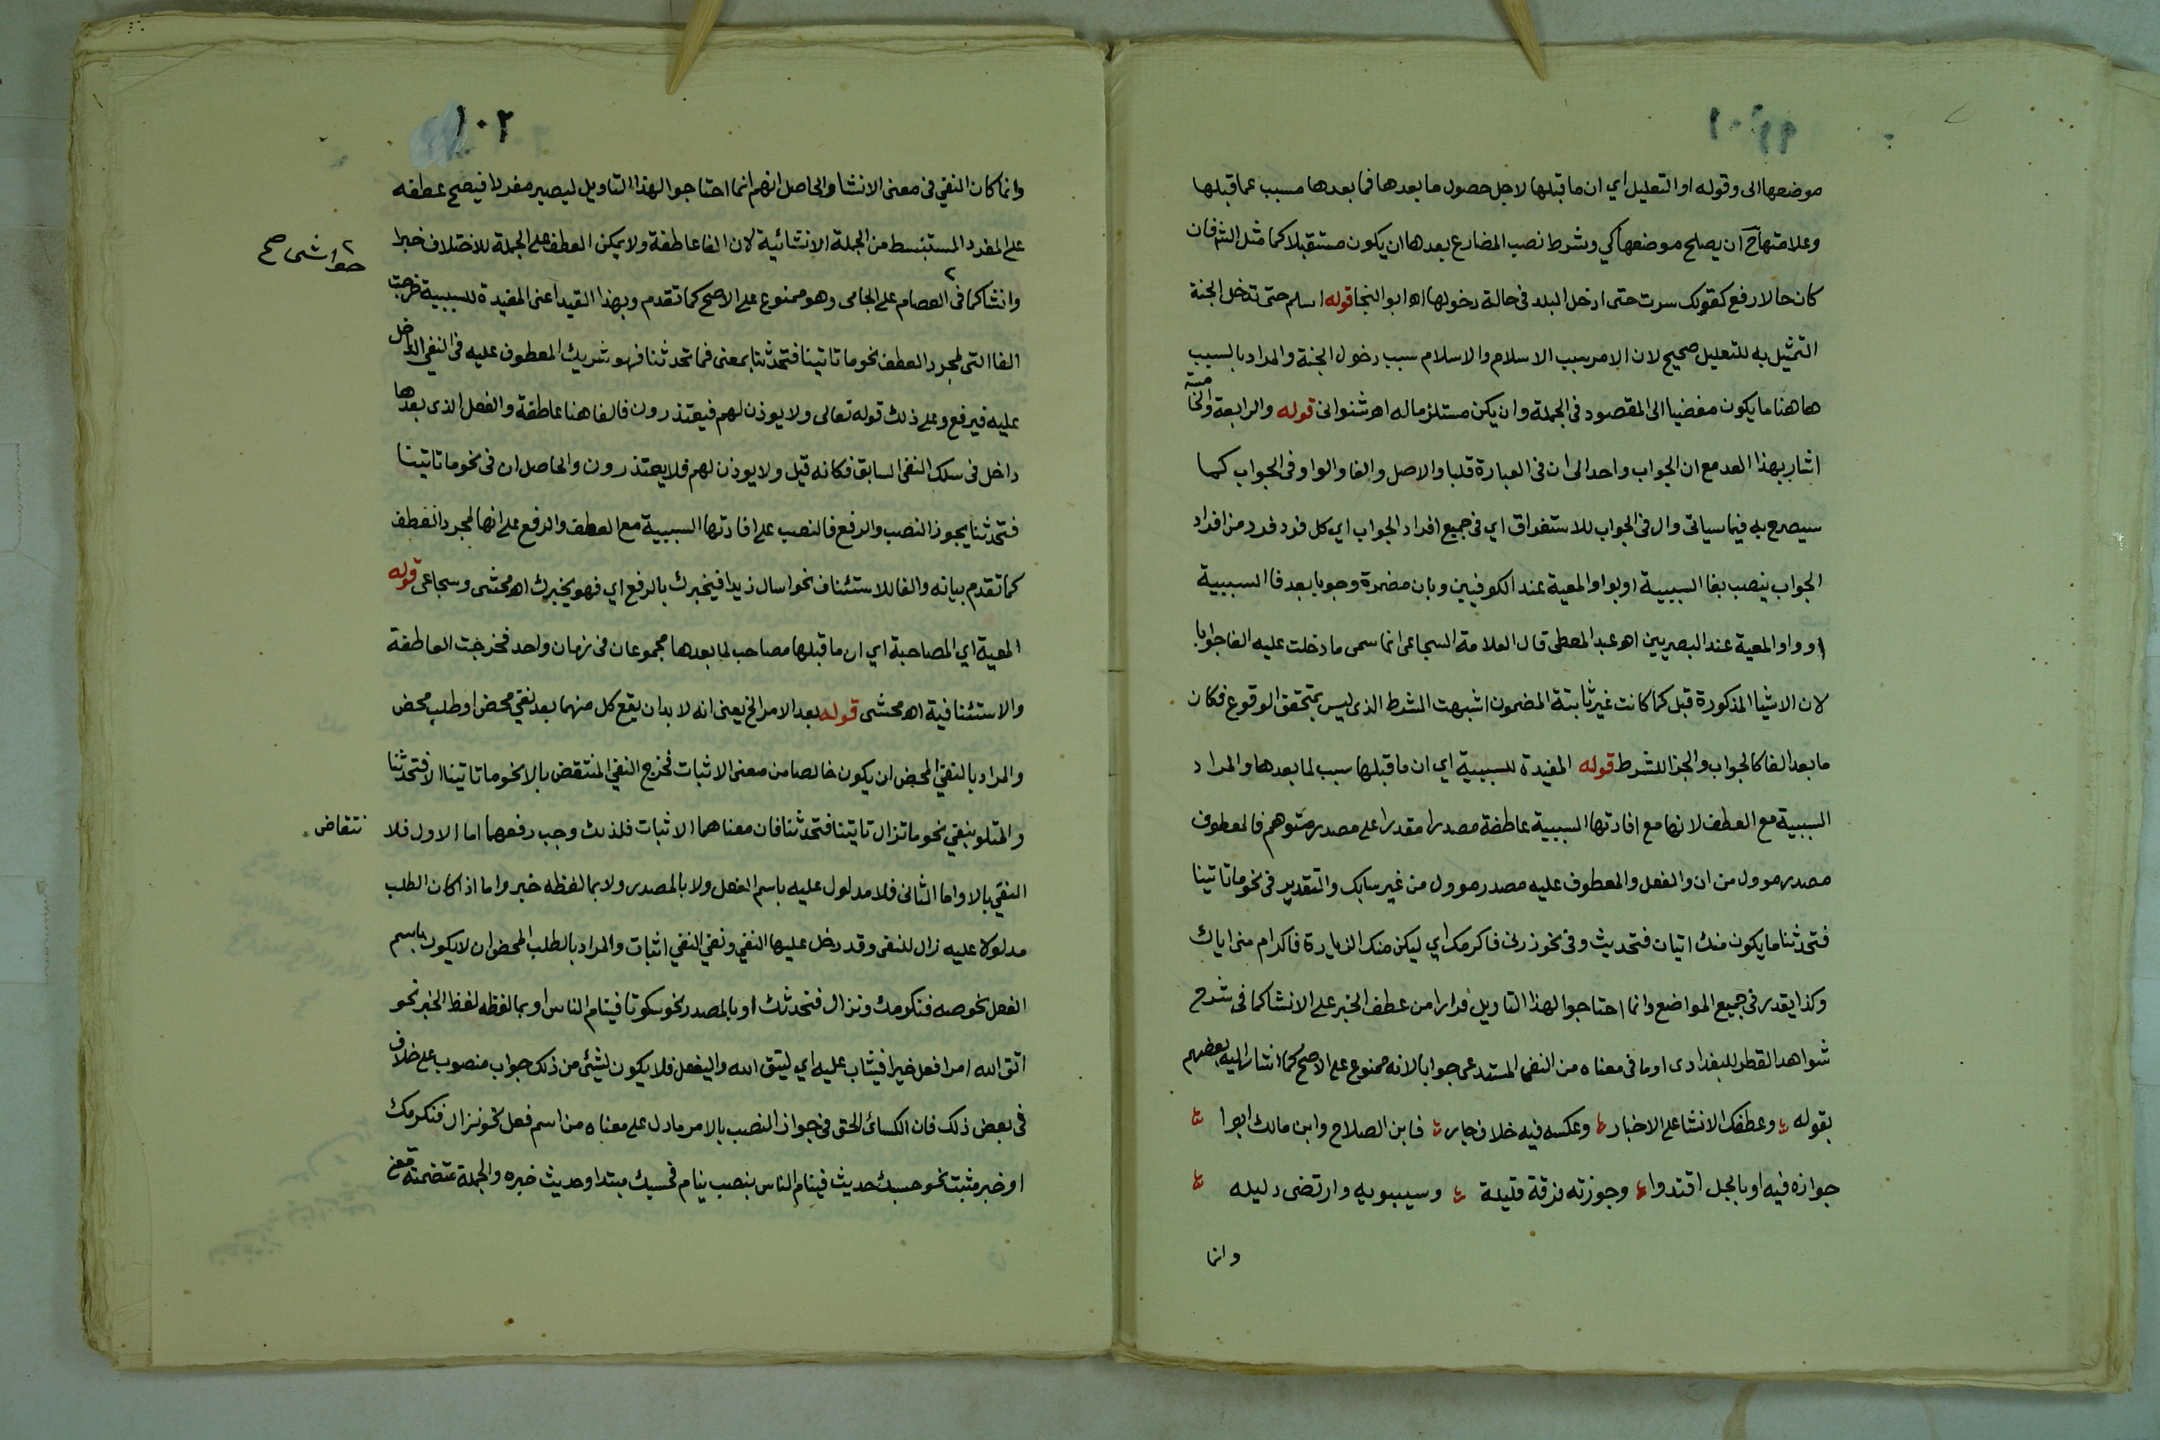 موضعها الى وقوله او التعليل اي ان ما قبلها لاجل حصول ما بعدها فما بعدها مسبب عما قبلها
وعلامتها ح ان يصلح موضعها كي وشرط نصب المضارع بعدها ان يكون مستقبلا كما مثل الش فان
كان حالا رفع كقولك سرت حتى ادخل البلد في حالة دخولها اه ابو النجا قوله اسلم حتى تدخل الجنة
التمثيل به للتعليل صحيح لان الامر سبب الاسلام والاسلام سبب دخول الجنة والمراد بالسبب
هاهنا ما يكون مفضيا الى المقصود في الجملة وان يكن مستلزما له اه شنواني قوله والرابعة والخامسة
اشار بهذا العد مع ان الجواب واحد الى ان في العبارة قلبا والاصل والفا والواو في الجواب كما
سيصرح به فيما سياتي وال في الجواب للاستغراق اي في جميع افراد الجواب اي كل فرد فرد من افراد
الجواب ينصب بفا السببية او بواو المعية عند الكوفيين وبان مضمرة وجوبا بعد فا السببية
او واو المعية عند البصريين اه عبد المعطي قال العلامة السجاعي انما سمى ما دخلت عليه الفا جوابا
لان الاشيا المذكورة قبل كما كانت غير ثابتة المضمون اشبهت الشرط الذي ليس بمتحقق الوقوع فكان
ما بعد الفا كالجواب والجزا للشرط قوله المفيدة للسببية اي ان ما قبلها سبب لما بعدها والمراد
السببية مع العطف لانها مع افادتها السببية عاطفة مصدرا مقدرا على مصدر متوهم فالمعطوف
مصدر موول من ان والفعل والمعطوف عليه مصدر موول من غير سابك والتقدير في نحو ما تاتينا
فتحدثنا ما يكون منك اتيان فتحديث وفي نحو زرني فاكرمك اي ليكن منك الزيارة فاكرام مني اياك
وكذا يقدر في جميع المواضع وانما احتاجوا لهذا التاويل فرارا من عطف الخبر على الانشا كما في شرح
شواهد القطر للبغدادي او ما في معناه من النفي المستدعي جوابا لانه ممنوع على الاصح كما اشار اليه بعضهم
بقوله وعطفك الانشا على الاخبار وعكسه فيه خلاف جار فابن الصلاح وابن مالك ابوا
جوازه فيه او بالجل اقتدوا وجوزته فرقة قليلة وسيبويه وارتضى دليله
وانما
١٠٢
وانما كان النفي في معنى الانشا والحاصل انهم انما احتاجوا لهذا التاويل ليصير مفردا فيصح عطفه
على المفرد المستنبسط من الجملة الانشائية لان الفا عاطفة ولا يمكن العطف على الجملة للاختلاف خبرا
٢ حواشي صح
وانشا كما في ٢ العصام على الجامي وهو ممنوع على الاصح كما تقدم وبهذا القيد اعنى المفيدة للسببية خرجت
الفا التي لمجرد العطف نحو ما تاتينا فتحدثنا بمعنى فما تحدثنا فهو شريك المعطوف عليه في النفي الداخل
عليه فيرفع وعلى ذلك قوله تعالى ولا يوذن لهم فيعتذرون فالفا هنا عاطفة والفعل الذي بعدها
داخل في سلك النفي السابق فكانه قيل ولا يوذن لهم فلا يعتذرون والحاصل ان في نحو ما تاتينا
فتحدثنا يجوز النصب والرفع فالنصب على افادتها السببية مع العطف والرفع على انها لمجرد العطف
كما تقدم بيانه والفا للاستئناف نحو اسال زيدا فيخبرك بالرفع اي فهو يخبرك اه محشى وسجاعي قوله
المعية اي المصاحبة اي ان ما قبلها مصاحب لما بعدها مجموعان في زمان واحد فخرجت العاطفة
والاستئنافية اه محشى قوله بعد الامر الخ يعنى انه لا بد ان يقع كل منهما بعد نفي محض او طلب محض
والمراد بالنفي المحض ان يكون خالصا من معنى الاثبات فخرج النفي المنتقض بالا نحو ما تاتينا الا فتحدثنا
والمتلو بنفي نحو ما تزال تاتينا فتحدثنا فان معناهما الاثبات فلذلك وجب رفعهما اما الاول فلا نتقاض
النفي بالا واما الثاني فلا مدلول عليه باسم الفعل ولا بالمصدر ولا بما لفظه خبر واما اذا كان الطلب
مدلولا عليه زال للنفي وقد دخل عليها النفي ونفي النفي اثبات والمراد بالطلب المحض ان لا يكون باسم
الفعل نحو صه فنكرمك ونزال فنحدثك او بالمصدر نحو سكوتا فينام الناس او بما لفظه لفظ الخبر نحو
اتق الله امرا فعل خيرا فيثاب عليه اي ليتق الله واليفعل فلا يكون لشيئ من ذلك جواب منصوب على خلاف
في بعض ذلك فان الكسائى الحق في جواز النصب بالامر ما دل على معناه من اسم فعل نحو نزال فنكرمك
او خبر مثبت نحو حسبك حديث فينام الناس بنصب ينام فحسبك مبتدا وحديث خبره والجملة متضمنة معنى